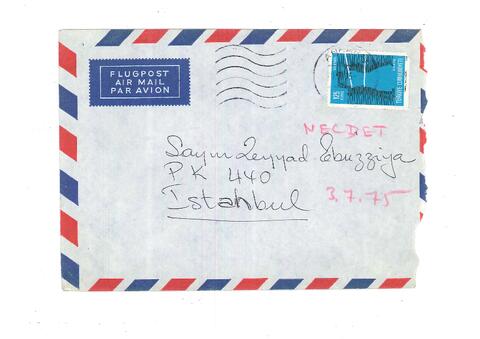 FLUGPOST
AIR MAIL
PAR AVION
125
TÜRKİYE CUMHURİYETİ
NECDET
Sayın Zeyyad Ebuzziya
PK 440
İstanbul
3.7.75